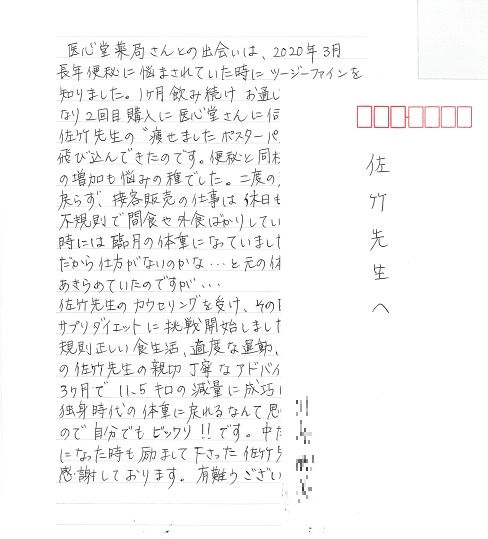 医心堂薬局さんとの出会いは、2020年3月
長年便秘に悩まされていた時にツージーファインを
知りました。1ヶ月飲み続けお通し
なり2回目購入に医心堂さんに伺
佐竹先生の〝痩せましたポスターパ
飛び込んできたのです。便秘と同
の増加も悩みの種でした。二度の
戻らず、接客販売の仕事は休日も
不規則で間食や外食ばかりしてい
時には臨月の体重になっていました
だから仕方がないのかな…と元の体
あきらめていたのですが…
佐竹先生のカウセリングを受け、その
サプリダイエットに挑戦開始しまし
規則正しい食生活、適度な運動、
の佐竹先生の親切丁寧なアドバイ
3ヶ月で11.5キロの減量に成功
独身時代の体重に戻れるなんて思
ので自分でもビックリ!!です。中た
になった時も励まして下さった佐竹
感謝しております。有難うござい
佐竹先生へ